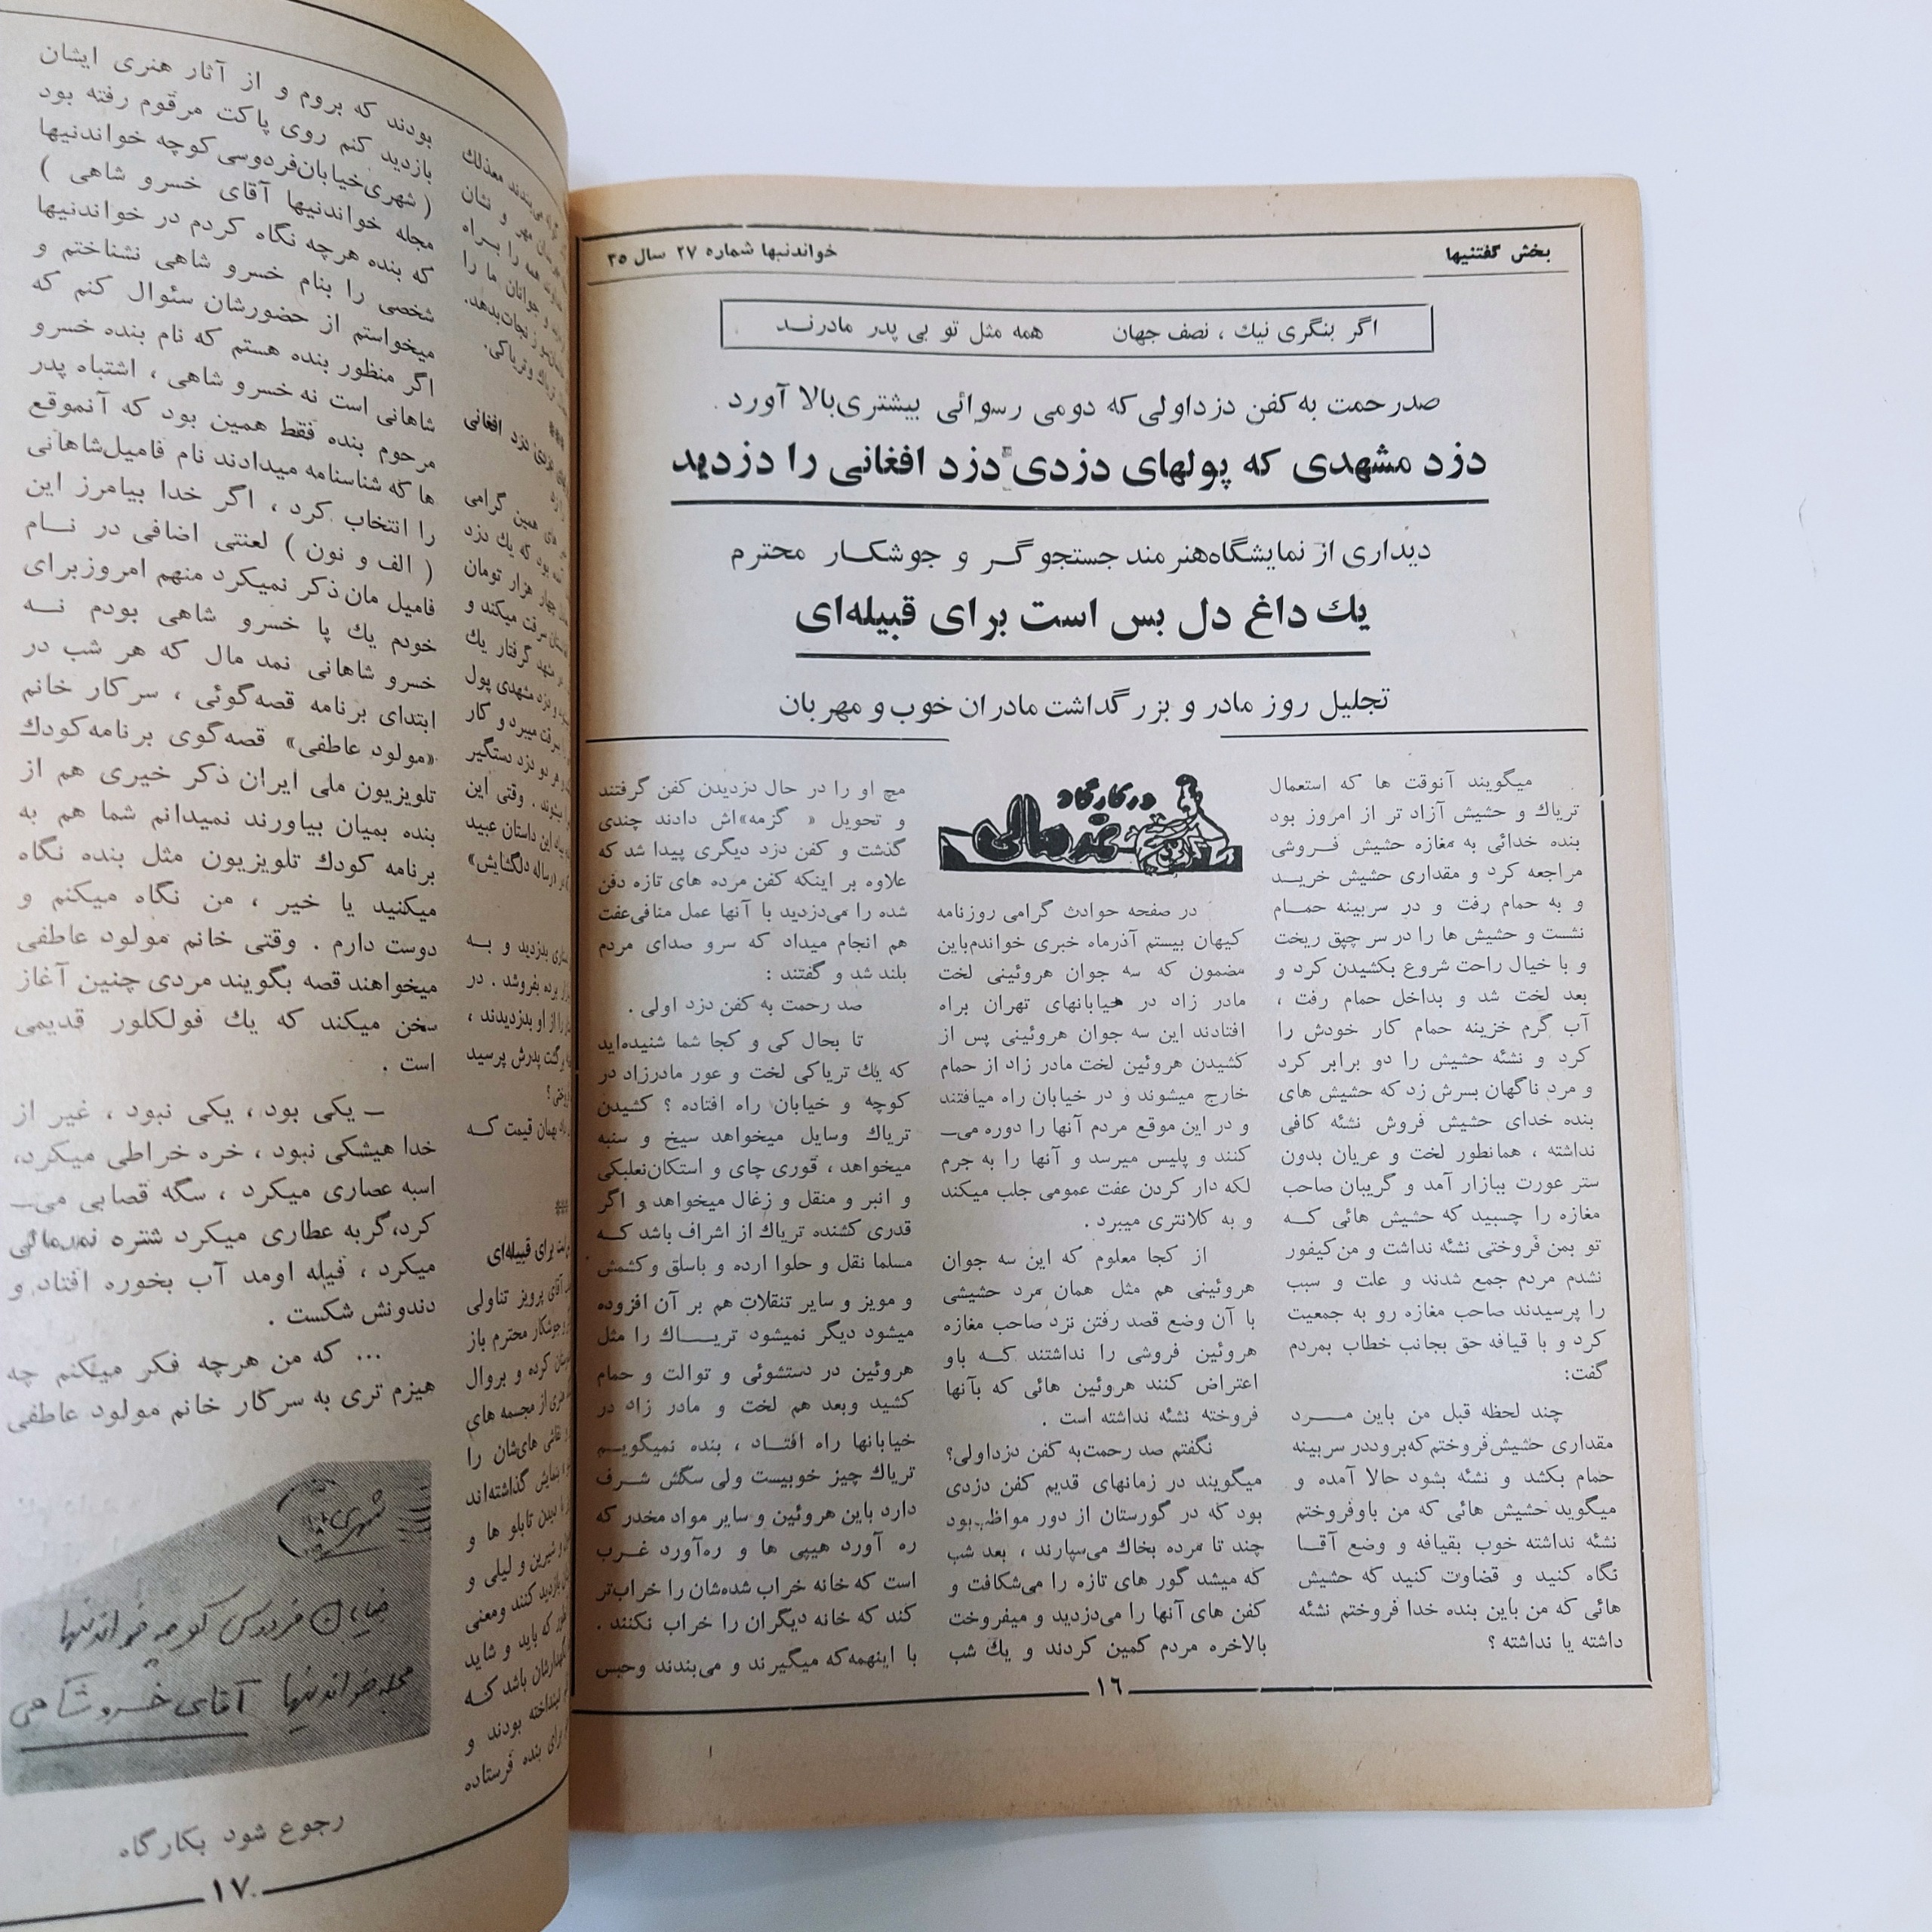 بخش گفتنیها
خواندنیها شماره ۲۷ سال ۳۵
اگر بنگری نیك ، نصف جهان همه مثل تو بی پدر مادرنـد
صدرحمت به کفن دزداولی که دومی رسوائی بیشتری بالا آورد .
دزد مشهدی که پولهای دزدی دزد افغانی را دزدید
دیداری از نمایشگاه هنرمند جستجوگـر و جوشکـار محترم
یك داغ دل بس است برای قبیله‌ای
تجلیل روز مادر و بزرگداشت مادران خوب و مهربان
میگویند آنوقت ها که استعمال
تریاك و حشیش آزاد تر از امروز بود
بنده خدائی به مغازه حشیش فـروشی
مراجعه کرد و مقداری حشیش خریـد
و به حمام رفت و در سربینه حمـام
نشست و حشیش ها را در سر چپق ریخت
و با خیال راحت شروع بکشیدن کرد و
بعد لخت شد و بداخل حمام رفت ،
آب گرم خزینه حمام کار خودش را
کرد و نشئه حشیش را دو برابر کرد
و مرد ناگهان بسرش زد که حشیش های
بنده خدای حشیش فروش نشئه کافی
نداشته ، همانطور لخت و عریان بدون
ستر عورت ببازار آمد و گریبان صاحب
مغازه را چسبید که حشیش هائی کـه
تو بمن فروختی نشئه نداشت و من کیفور
نشدم مردم جمع شدند و علت و سبب
را پرسیدند صاحب مغازه رو به جمعیت
کرد و با قیافه حق بجانب خطاب بمردم
گفت:
چند لحظه قبل من باین مـرد
مقداری حشیش فروختم که برود در سربینه
حمام بکشد و نشئه بشود حالا آمده و
میگوید حشیش هائی که من باو فروختم
نشئه نداشته خوب بقیافه و وضع آقـا
نگاه کنید و قضاوت کنید که حشیش
هائی که من باین بنده خدا فروختم نشئه
داشته یا نداشته ؟
در کارگاه
نمدمالی
در صفحه حوادث گرامی روزنامه
کیهان بیستم آذرماه خبری خواندم باین
مضمون که سه جوان هروئینی لخت
مادر زاد در خیابانهای تهران براه
افتادند این سه جوان هروئینی پس از
کشیدن هروئین لخت مادر زاد از حمام
خارج میشوند و در خیابان راه میافتند
و در این موقع مردم آنها را دوره می‌ـ
کنند و پلیس میرسد و آنها را به جرم
لکه دار کردن عفت عمومی جلب میکند
و به کلانتری میبرد .
از کجا معلوم که این سه جوان
هروئینی هم مثل همان مرد حشیشی
با آن وضع قصد رفتن نزد صاحب مغازه
هروئین فروشی را نداشتند کـه باو
اعتراض کنند هروئین هائی که بآنها
فروخته نشئه نداشته است .
نگفتم صد رحمت به کفن دزداولی؟
میگویند در زمانهای قدیم کفن دزدی
بود که در گورستان از دور مواظب بود
چند تا مرده بخاك می‌سپارند ، بعد شب
که میشد گور های تازه را می‌شکافت و
کفن های آنها را می‌دزدید و میفروخت
بالاخره مردم کمین کردند و یك شب
مچ او را در حال دزدیدن کفن گرفتند
و تحویل « گزمه»اش دادند چندی
گذشت و کفن دزد دیگری پیدا شد که
علاوه بر اینکه کفن مرده های تازه دفن
شده را می‌دزدید با آنها عمل منافی عفت
هم انجام میداد که سرو صدای مردم
بلند شد و گفتند :
صد رحمت به کفن دزد اولی .
تا بحال کی و کجا شما شنیده‌اید
که یك تریاکی لخت و عور مادرزاد در
کوچه و خیابان راه افتاده ؟ کشیدن
تریاك وسایل میخواهد سیخ و سنبه
میخواهد ، قوری چای و استکان نعلبکی
و انبر و منقل و زغال میخواهد و اگر
قدری کشنده تریاك از اشراف باشد کـه
مسلما نقل و حلوا ارده و باسلق و کشمش
و مویز و سایر تنقلات هم بر آن افزوده
میشود دیگر نمیشود تریـاك را مثل
هروئین در دستشوئی و توالت و حمام
کشید وبعد هم لخت و مادر زاد در
خیابانها راه افتـاد ، بنده نمیگویـم
تریاك چیز خوبیست ولی سگش شـرف
دارد باین هروئین و سایر مواد مخدر که
ره آورد هیپی ها و ره‌آورد غـرب
است که خانه خراب شده‌شان را خراب‌تر
کند که خانه دیگران را خراب نکنند .
با اینهمه که میگیرند و می‌بندند وحبس
۱۶
معذلك
و نشان
همه را بـراه
و جوانان ما را
نجات بدهد.
و تریاکی.
دزد افغانی
های همین گرامی
بود که یك دزد
چهار هزار تومان
سرقت میکند و
مشهد گرفتار یك
دزد مشهدی پول
سرقت میبرد و کار
هر دو دزد دستگیر
میشوند . وقتی این
این داستان عبید
«رساله دلگشایش»
بدزدید و بـه
برده بفروشد . در
را از او بدزدیدند ،
گفت پدرش پرسید
همان قیمت کـه
برای قبیله‌ای
آقای پرویز تناولی
جوشکار محترم باز
کرده و بروال
از مجسمه های
نقاشی های‌شان را
بنمایش گذاشته‌اند
دیدن تابلو ها و
شیرین و لیلی و
بازدید کنند ومعنی
که باید و شاید
باشد کـه
انداخته بودند و
برای بنده فرستاده
بودند که بروم و از آثار هنری ایشان
بازدید کنم روی پاکت مرقوم رفته بود
( شهری خیابان فردوسی کوچه خواندنیها
مجله خواندنیها آقای خسرو شاهی )
که بنده هرچه نگاه کردم در خواندنیها
شخصی را بنام خسرو شاهی نشناختم و
میخواستم از حضورشان سئوال کنم که
اگر منظور بنده هستم که نام بنده خسرو
شاهانی است نه خسرو شاهی ، اشتباه پدر
مرحوم بنده فقط همین بود که آنموقع
ها که شناسنامه میدادند نام فامیل شاهانی
را انتخاب کرد ، اگر خدا بیامرز این
( الف و نون ) لعنتی اضافی در نـام
فامیل مان ذکر نمیکرد منهم امروز برای
خودم یك پا خسرو شاهی بودم نـه
خسرو شاهانی نمد مال که هر شب در
ابتدای برنامه قصه‌گوئی ، سرکار خانم
«مولود عاطفی» قصه‌گوی برنامه کودك
تلویزیون ملی ایران ذکر خیری هم از
بنده بمیان بیاورند نمیدانم شما هم به
برنامه کودك تلویزیون مثل بنده نگاه
میکنید یا خیر ، من نگاه میکنم و
دوست دارم . وقتی خانم مولود عاطفی
میخواهند قصه بگویند مردی چنین آغاز
سخن میکند که یك فولکلور قدیمی
است .
ــ یکی بود ، یکی نبود ، غیر از
خدا هیشکی نبود ، خره خراطی میکرد،
اسبه عصاری میکرد ، سگه قصابی می‌ـ
کرد،گربه عطاری میکرد شتره نمدمالی
میکرد ، فیله اومد آب بخوره افتاد و
دندونش شکست .
... که من هرچه فکر میکنم چه
هیزم تری به سرکار خانم مولود عاطفی
شهری
خیابان فردوسی کوچه خواندنیها
مجله خواندنیها آقای خسرو شاهی
رجوع شود بکارگاه
۱۷